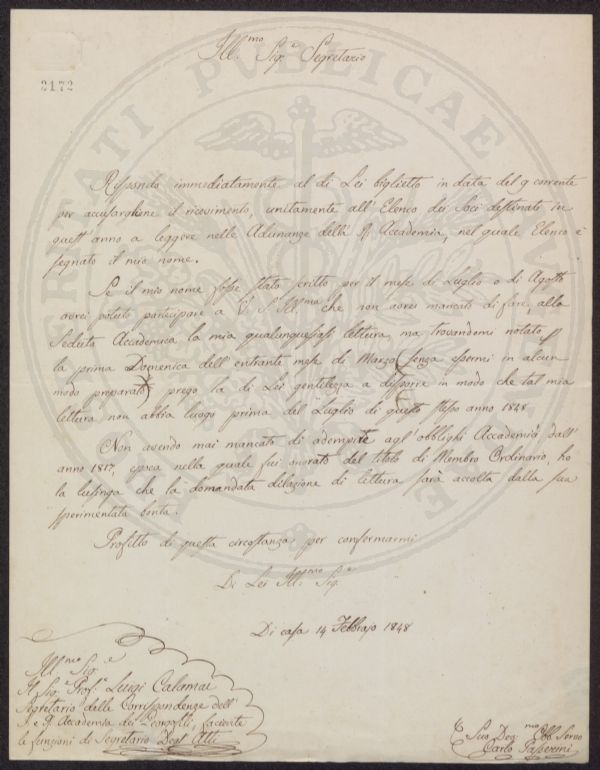 Ill.mo Sig.e Segretario
2172
Rispondo immediatamente al di Lei biglietto in data del 9 corrente
per accusarghene il ricevimento, unitamente all'Elenco dei Soci destinati in
quest'anno a leggere nelle Adunanze della R. Accademia, nel quale Elenco è
segnato il mio nome.
Se il mio nome fosse stato scritto per il mese di Luglio o di Agosto
avrei potuto partecipare a V. S. Ill.ma che non avrei mancato di fare, alla
Seduta Accademica la mia qualunquesiasi lettura, ma trovandomi notato
la prima Domenica dell'entrante mese di Marzo (senza essermi in alcun
modo preparato) prego la di Lei gentilezza a disporre in modo che tal mia
lettura non abbia luogo prima del Luglio di questo stesso anno 1848
Non avendo mai mancato di adempire agl'obblighi Accademici, dall'
anno 1817, epoca nella quale fui onorato del titolo di Membro Ordinario, ho
la lusinga che la domandata dilazione di lettura sarà accolta dalla sua
sperimentata bontà.
Profitto di questa circostanza per confermarmi
Di Lei Ill.mo Sig.e
Di casa 14 Febbrajo 1848
Ill.mo Sig.e
Il Sig.e Prof.e Luigi Calamai
Segretario delle Corrispondenze dell'
I. e R. Accademia dei Georgofili, facente
le funzioni di Segretario Degl'Atti
Suo Dev.mo Obb. Servo
Carlo Passerini
PUBLICAE